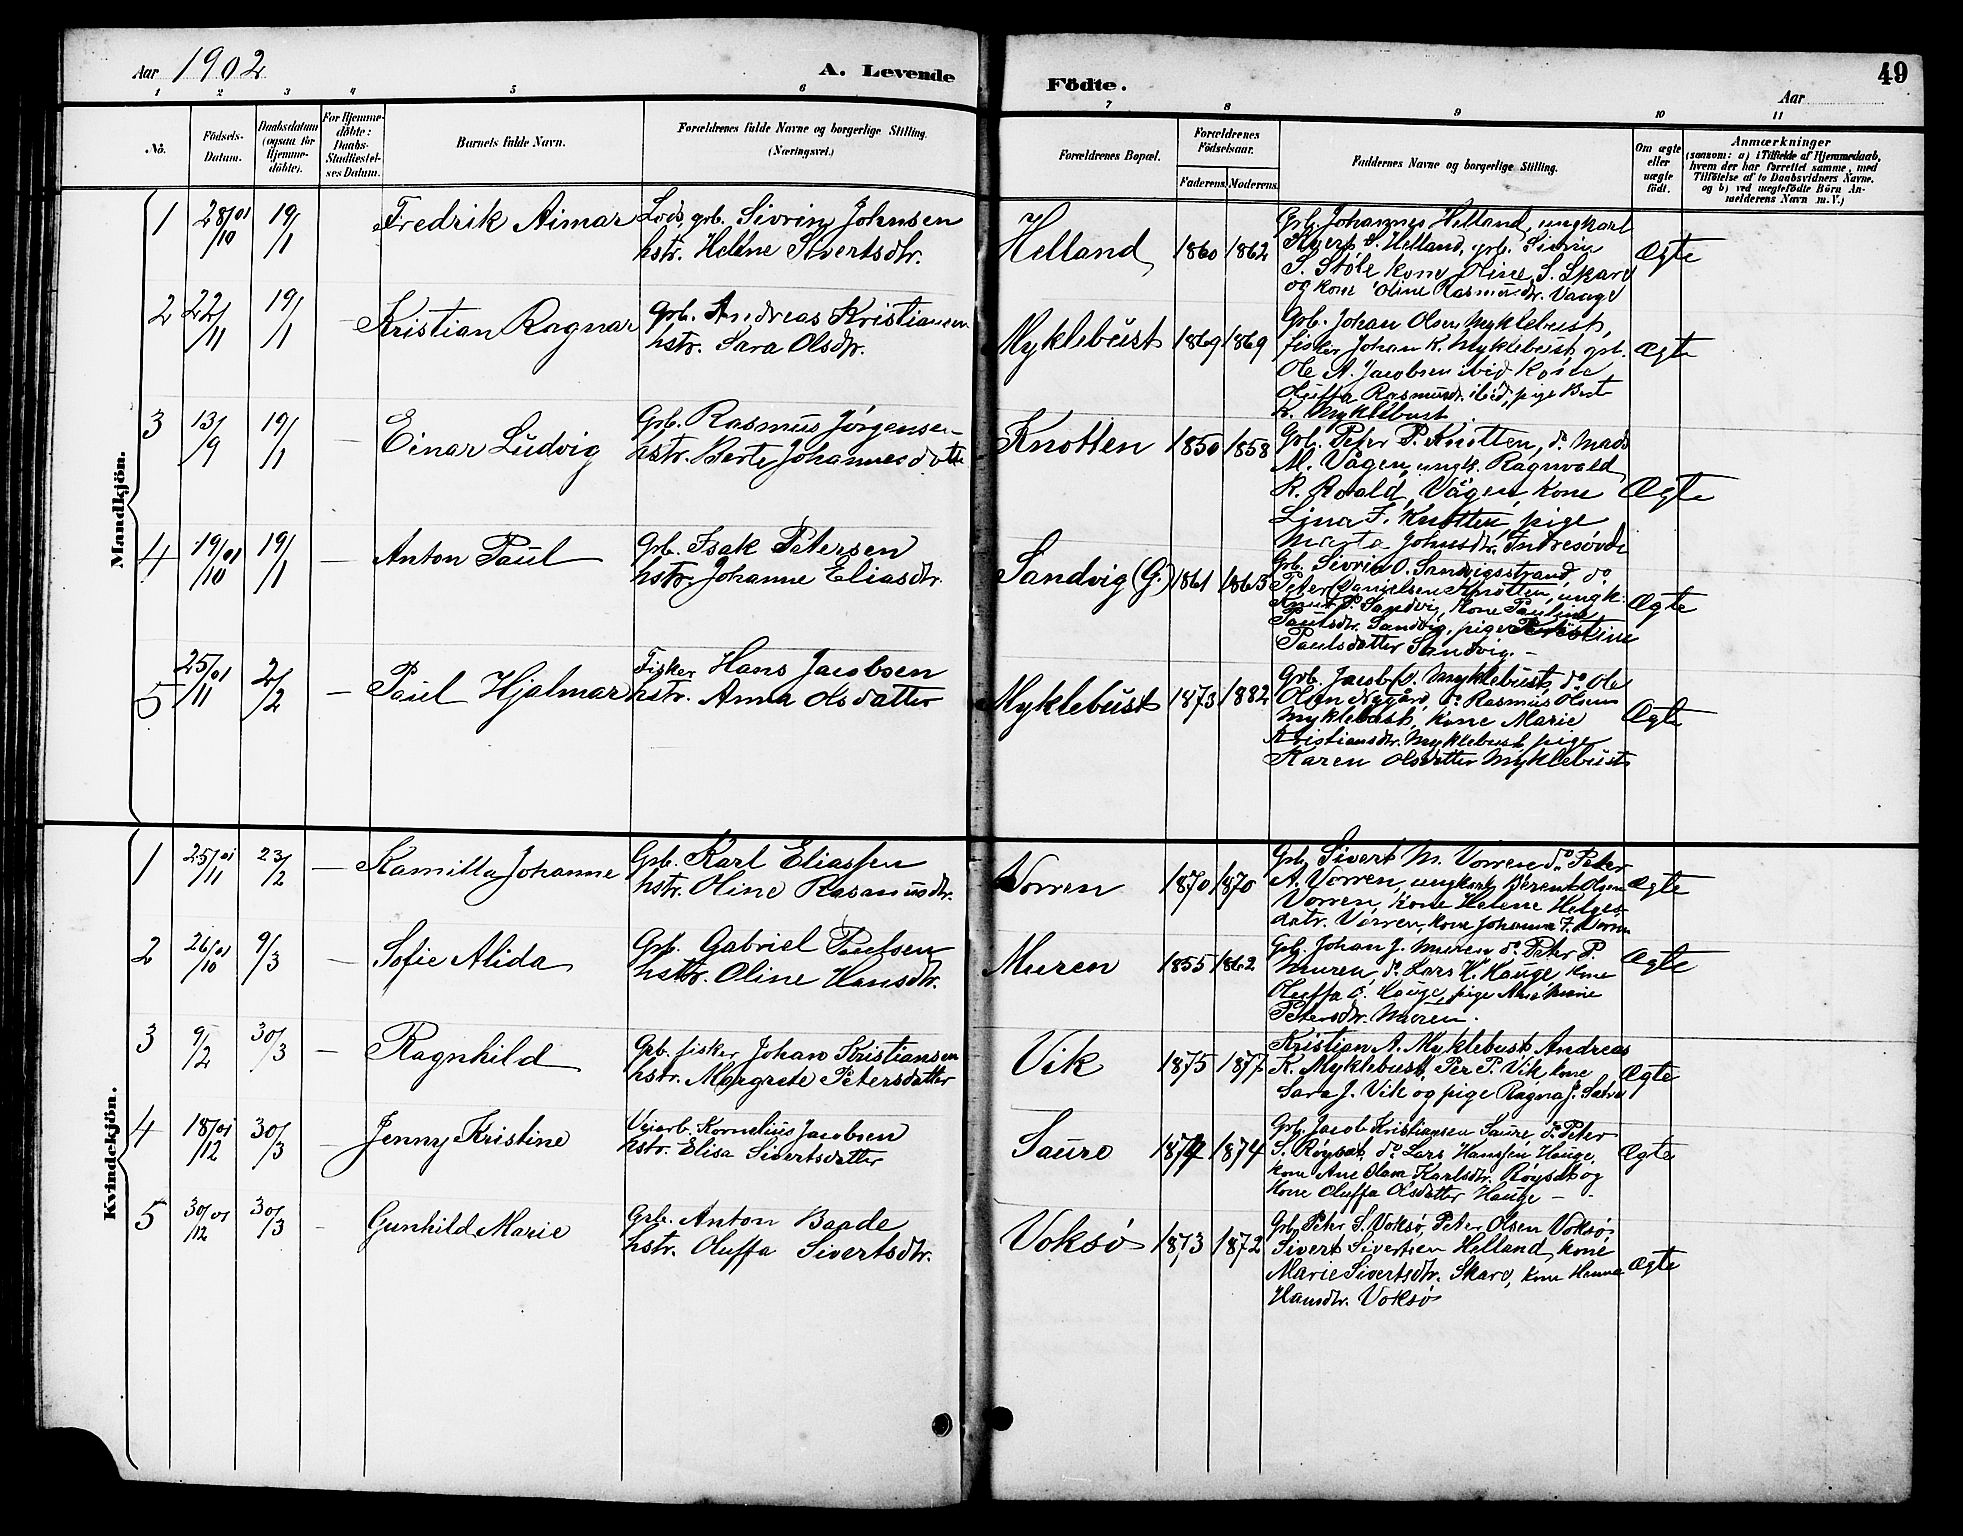 Aar 1902
A. Levende
Födte.
49
Aar
1 2 3 4 5 6 7 8 9 10 11
No.
Födsels-
Datum.
Daabsdatum
(ogsaa for
Hjemme-
döbte).
For Hjemme-
döbte:
Daabs-
Stadfæstel-
ses Datum.
Barnets fulde Navn.
Forældrenes fulde Navne og borgerlige Stilling.
(Næringsvei.)
Forældrenes Bopæl.
Forældrenes
Födselsaar.
Faderens. Moderens.
Faddernes Navne og borgerlige Stilling.
Om ægte
eller
uægte
födt.
Anmærkninger
(saasom: a) i Tilfælde af Hjemmedaab,
hvem der har forrettet samme, med
Tilföielse af to Daabsvidners Navne.
og b) ved uægtefödte Börn An-
melderens Navn m. V.)
Mandkjön.
1 28/10 01 19/1 Fredrik Aimar
Lods, grb. Sivrin Johnsen
hstr. Helene Sivertsdtr.
Helland 1860 1862
Grb. Johannes Helland, ungkarl
Sivert S. Helland, grb. Sivrin
S. Støle kone Oline S. Skare
og kone Oline Rasmusdr. Vaage
Ægte
2 22/11 19/1 Kristian Ragnar
Grb. Andreas Kristiansen
hstr. Sara Olsdtr.
Myklebust 1869 1869
Grb. Johan Olsen Myklebust,
fisker Johan K. Myklebust, grb.
Ole A. Jacobsen ibid kone
Oluffa Rasmusd. ibid, pige Berte
K. Myklebust
Ægte
3 13/9 19/1 — Einar Ludvig
Grb. Rasmus Jørgensen
hstr. Berte Johannesdotte
Knotten 1850 1858
Grb. Peter P. Knotten, do Mads
M. Vågen, ungk. Ragnvald
R. Roald, Vågen, kone
Lina J. Knotten, pige
Marta Johnsdtr. Indresøvde
Ægte
4 19/10 01 19/1 — Anton Paul
Grb. Isak Petersen
hstr. Johanne Eliasdtr.
Sandvig (G.) 1861 1865
Grb. Sivrin O. Sandvigsstrand, do
Peter Danielsen Knotten, ungk.
Knut P. Sandvig, kone Pauline
Paulsdtr. Sandvig, pige Kristine
Paulsdatter Sandvig. —
Ægte
5 25/11 01 2/2 — Paul Hjalmar
Fisker Hans Jacobsen
hstr. Anna Olsdatter
Myklebust 1873 1882
Grb. Jacob O. Myklebust, do Ole
Olsen Nygård, do Rasmus Olsen
Myklebust, kone Marie
Kristiansdtr. Myklebust, pige
Karen Olsdatter Myklebust
Ægte
Kvindekjön.
1 25/11 01 23/2 — Kamilla Johanne
Grb. Karl Eliassen
hstr. Oline Rasmusdtr.
Vorren 1870 1870
Grb. Sivert M. Vorren do Peter
A. Vorren, ungkarl Berent Olsen
Vorren, kone Helene Helges-
datr. Vorren, kone Johanna J. Vorren
Ægte
2 26/10 01 9/3 — Sofie Alida
Grb. Gabriel Paulsen
hstr. Oline Hansdtr.
Muren 1855 1862
Grb. Johan J. Muren do Peter P.
Muren, do Lars H. Hauge, kone
Oluffa O. Hauge, pige
Petersdtr. Muren.
Ægte
3 9/2 30/3 — Ragnhild
Grb. fisker Johan Kristiansen
hstr. Margrete Petersdatter
Vik 1875 1877
Kristian A. Myklebust, Andreas
K. Myklebust, Per P. Vik, kone
Sara J. Vik og pige Ragna J. Sætre
Ægte
4 18/12 01 30/3 — Jenny Kristine
Veiarb. Kornelius Jacobsen
hstr. Elisa Sivertsdatter
Saure 1874 1874
Grb. Jacob Kristiansen Saure, do Peter
S. Røyset, do Lars Hanssen Hauge,
kone Ane Olava Karlsdtr. Røyset og
kone Oluffa Olsdatter Hauge —
Ægte
5 30/12 01 30/3 — Gunhild Marie
Grb. Anton Baade
hstr. Oluffa Sivertsdtr.
Voksø 1873 1872
Grb. Peter S. Voksø, Peter Olsen Voksø,
Sivert Sivertsen Helland, kone
Marie Sivertsdtr. Skare, kone Hanna
Hansdtr. Voksø
Ægte